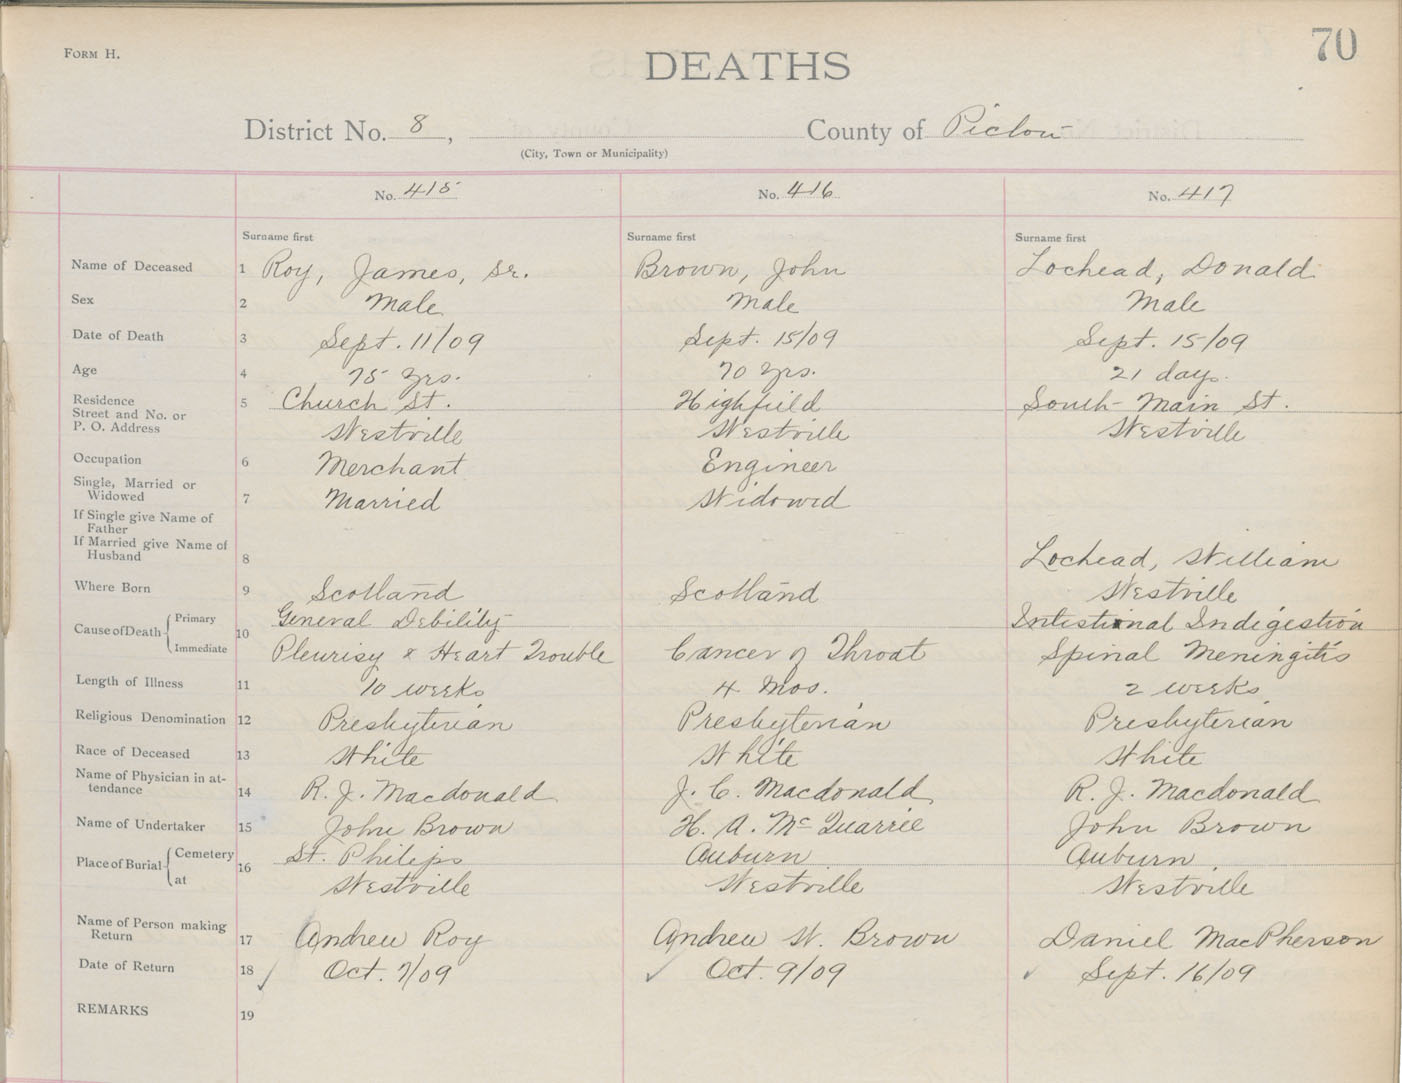 FORM H.
70
DEATHS
District No. 8, County of Pictou
(City, Town or Municipality)
No. 415 No. 416 No. 417
Surname first Surname first Surname first
Name of Deceased 1 Roy, James, Sr. Brown, John Lochead, Donald
Sex 2 Male Male Male
Date of Death 3 Sept. 11/09 Sept. 15/09 Sept. 15/09
Age 4 75 yrs. 70 yrs. 21 days.
Residence 5 Church St. Highfield South Main St.
Street and No. or
P. O. Address Westville Westville Westville
Occupation 6 Merchant Engineer
Single, Married or
Widowed 7 Married Widowed
If Single give Name of
Father
If Married give Name of
Husband 8 Lochead, William
Where Born 9 Scotland Scotland Westville
Cause of Death Primary 10 General Debility Intestional Indigestion
Immediate Pleurisy & Heart Trouble Cancer of Throat Spinal Meningitis
Length of Illness 11 10 weeks 4 Mos. 2 weeks
Religious Denomination 12 Presbyterian Presbyterian Presbyterian
Race of Deceased 13 White White White
Name of Physician in at-
tendance 14 R. J. Macdonald J. C. Macdonald R. J. Macdonald
Name of Undertaker 15 John Brown H. A. McQuarrie John Brown
Place of Burial Cemetery 16 St. Philips Auburn Auburn
at Westville Westville Westville
Name of Person making
Return 17 Andrew Roy Andrew W. Brown Daniel MacPherson
Date of Return 18 Oct. 7/09 Oct. 9/09 Sept. 16/09
REMARKS 19